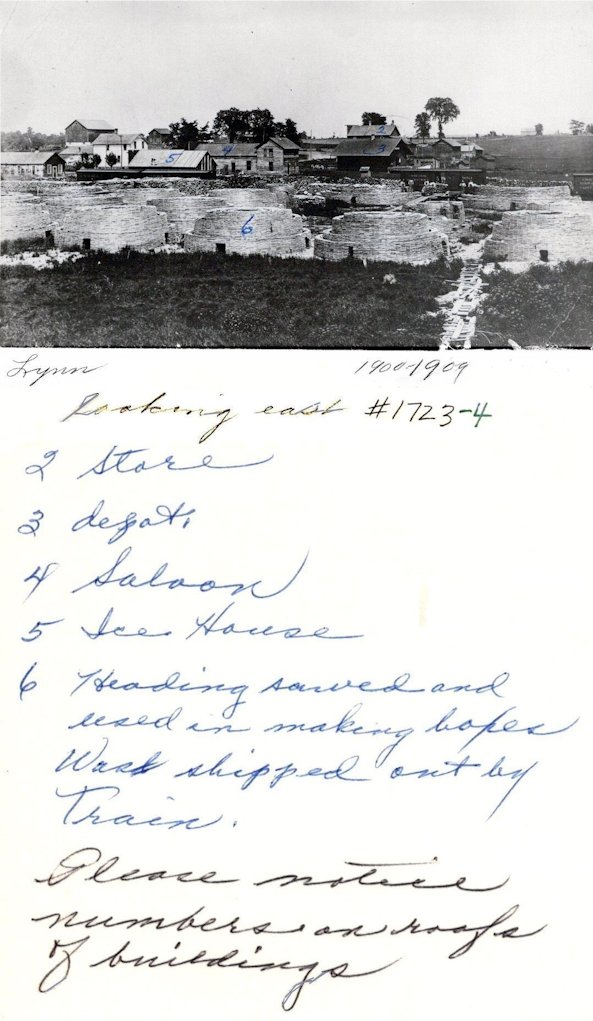 5
4
2
3
6
Lynn 1900-1909
Looking east #1723-4
2 Store
3 depot.
4 Saloon
5 Ice House
6 Heading sawed and
used in making boxes
Was shipped out by
Train.
Please notice
numbers on roofs
of buildings